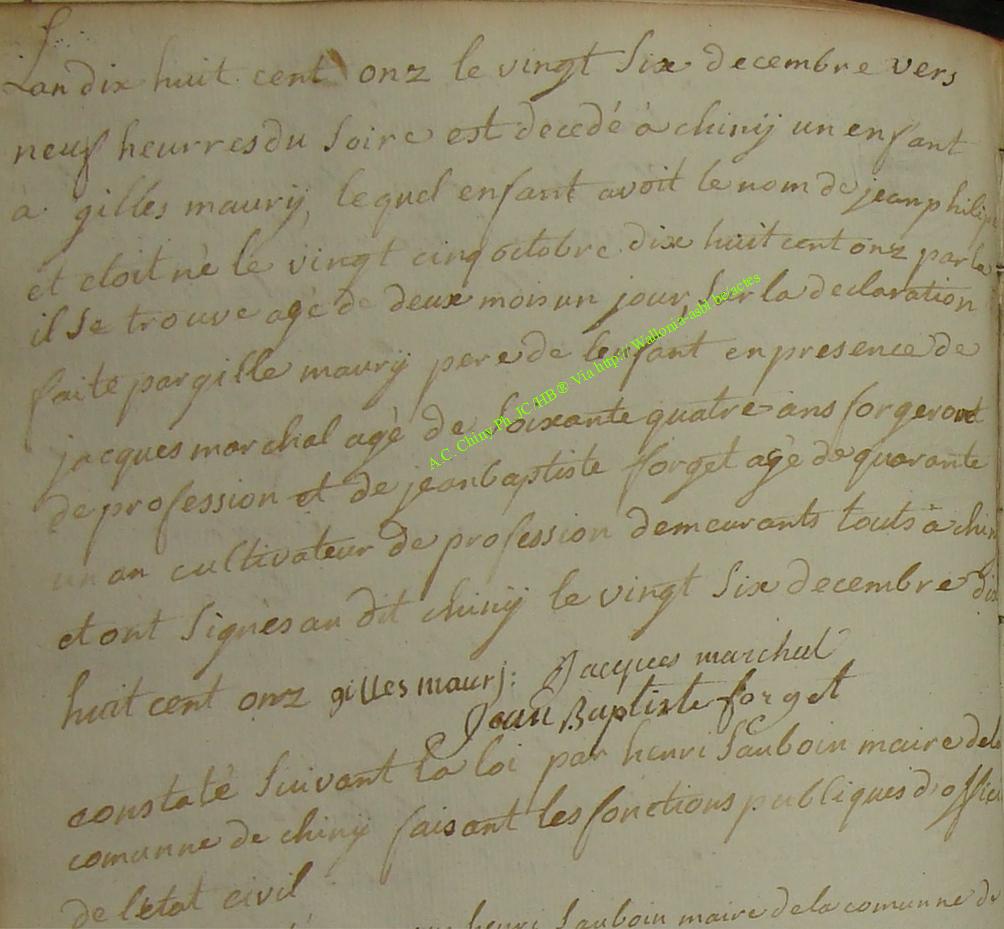 Lan dix huit cent onz le vingt Six decembre vers
neuf heurres du Soire est decedé à chinij un enfant
a gilles maurij, lequel enfant avoit le nom de jean philip
et etoit né le vingt cinq octobre dix huit cent onz par la
il Se trouve agé de deux mois un jour, Sur la declaration
faite par gille maurij pere de lenfant en presence de
jacques marchal agé de Soixante quatre ans forgeront
de profession et de jean baptiste forget agé de quarante
un an cultivateur de profession demeurants touts à chini
et ont Signés au dit chinij le vingt Six decembre dix
huit cent onz gilles maurj: Jacques marchal
Jean Baptiste forget
constaté Suivant la loi par henri Sauboin maire de la
comunne de chinij faisant les fonctions publiques d'officier
de l'etat civil
henri Sauboin maire de la comunne de
A.C. Chiny Ph. JC /HB ® Via http://Wallonia-asbl be/actes